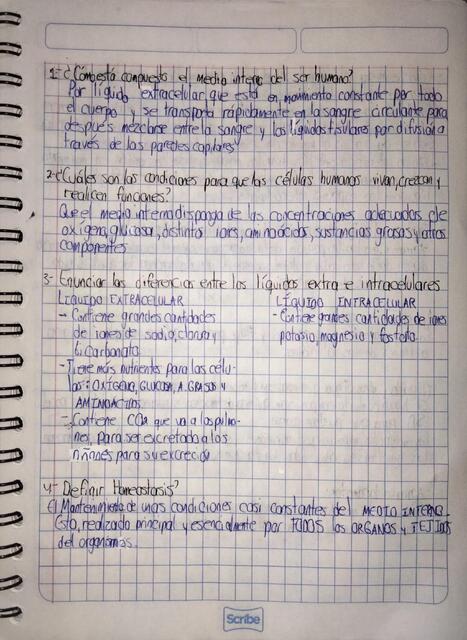 1- ¿Cómo está compuesto el medio interno del ser humano?
Por líquido extracelular que está en movimiento constante por todo
el cuerpo y se transporta rápidamente en la sangre circulante para
después mezclarse entre la sangre y los líquidos tisulares por difusión a
través de las paredes capilares
2-¿Cuáles son las condiciones para que las células humanas vivan, crezcan y
realicen funciones?
Que el medio interno disponga de las concentraciones adecuadas de
oxígeno, glucosa, distintos iones, aminoácidos, sustancias grasas y otros
componentes
3- Enunciar las diferencias entre los líquidos extra e intracelulares
LÍQUIDO EXTRACELULAR
- Contiene grandes cantidades
de iones de sodio, cloro y
bicarbonato
- Tiene más nutrientes para las célu-
las: OXÍGENO, GLUCOSA, A. GRASOS Y
AMINOÁCIDOS
- Contiene CO2 que va a los pulmo-
nes, para ser excretado a los
riñones para su excreción
LÍQUIDO INTRACELULAR
- Contiene grandes cantidades de iones
potasio, magnesio y fosfato
4- Definir Homeostasis?
Mantenimiento de unas condiciones casi constantes del MEDIO INTERNO.
Esto, realizado principal y esencialmente por TODOS los ORGANOS y TEJIDOS
del organismo.
Scribe